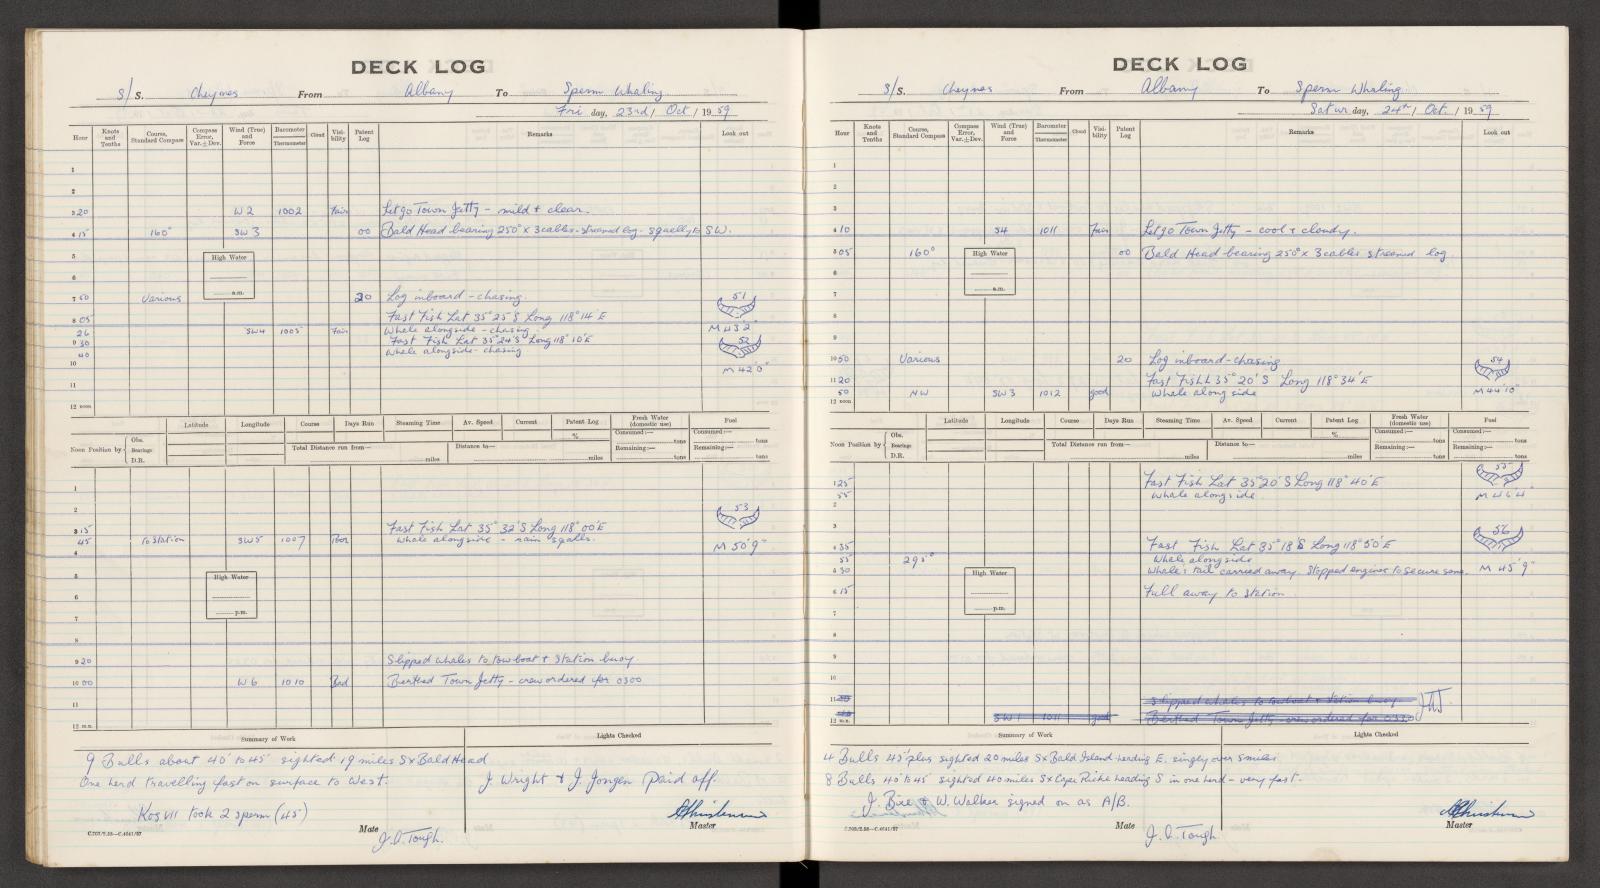 DECK LOG
S/S. Cheynes From Albany To Sperm Whaling
Friday, 23rd / Oct / 1959
Hour Knots and Tenths Course, Standard Compass Compass Error, Var. ± Dev. Wind (True) and Force Barometer Thermometer Cloud Visibility Patent Log Remarks Look out
1
2
3 20 W 2 1002 Fair Let go Town Jetty - mild + clear.
4 15 160° SW 3 00 Bald Head bearing 250° x 3 cables - streamed log - squally SW.
5
High Water
6
a.m.
7 50 Various 20 Log inboard - chasing. 51
8 05 Fast Fish Lat 35° 25' S Long 118° 14' E
26 SW4 1005 Fair Whale alongside - chasing. M 43'2"
9 30 Fast Fish Lat 35° 24' S Long 118° 10' E 52
40 Whale alongside - chasing
10 M 42'0"
11
12 noon
Latitude Longitude Course Days Run Steaming Time Av. Speed Current Patent Log % Fresh Water (domestic use) Fuel
Consumed:— tons Consumed:— tons
Noon Position by Obs. Bearings D.R. Total Distance run from— miles Distance to— miles Remaining:— tons Remaining:— tons
1
2 53
3 15 Fast Fish Lat 35° 32' S Long 118° 00' E
45 To Station SW5 1007 Poor Whale alongside - rain squalls. M 50'9"
4
5
High Water
6
p.m.
7
8
9 20 Slipped whales to towboat + station buoy
10 00 W 6 1010 Bad Berthed Town Jetty - crew ordered for 0300
11
12 m.n.
Summary of Work Lights Checked
9 Bulls about 40' to 45' sighted 19 miles SxBald Head
One herd travelling fast on surface to West. J. Wright + J. Jongen paid off.
Kos VII took 2 sperm (45')
Mate Master
C.703/2.58—C.4641/57
J.D. Tough.
DECK LOG
S/S. Cheynes From Albany To Sperm Whaling
Saturday, 24th / Oct. / 1959
Hour Knots and Tenths Course, Standard Compass Compass Error, Var. ± Dev. Wind (True) and Force Barometer Thermometer Cloud Visibility Patent Log Remarks Look out
1
2
3
4 10 S4 1011 Fair Let go Town Jetty - cool + cloudy.
5 05 160° 00 Bald Head bearing 250° x 3 cables streamed log.
High Water
6
a.m.
7
8
9
10 50 Various 20 Log inboard - chasing 54
11 20 Fast Fish L 35° 20' S Long 118° 34' E
50 NW SW 3 1012 good Whale alongside M 44'10"
12 noon
Latitude Longitude Course Days Run Steaming Time Av. Speed Current Patent Log % Fresh Water (domestic use) Fuel
Consumed:— tons Consumed:— tons
Noon Position by Obs. Bearings D.R. Total Distance run from— miles Distance to— miles Remaining:— tons Remaining:— tons
1 25 Fast Fish Lat 35° 20' S Long 118° 40' E 55
55 Whale alongside. M 46'4"
2
3 56
4 35 Fast Fish Lat 35° 18' S Long 118° 50' E
55 295° Whale alongside
5 30 Whale's tail carried away. Stopped engines to secure same. M 45'9"
High Water
6 15 Full away to station
p.m.
7
8
9
10
11 Slipped whales to towboat + station buoy
12 m.n. SW 1 1011 good Berthed Town Jetty crew ordered for 0330
Summary of Work Lights Checked
4 Bulls 45' plus sighted 20 miles SxBald Island heading E. singly over 5 miles
8 Bulls 40' to 45' sighted 40 miles SxCape Riche heading S in one herd - very fast.
J. Bire + W. Walker signed on as A/B.
Mate Master
C.703/2.58—C.4641/57
J.D. Tough.